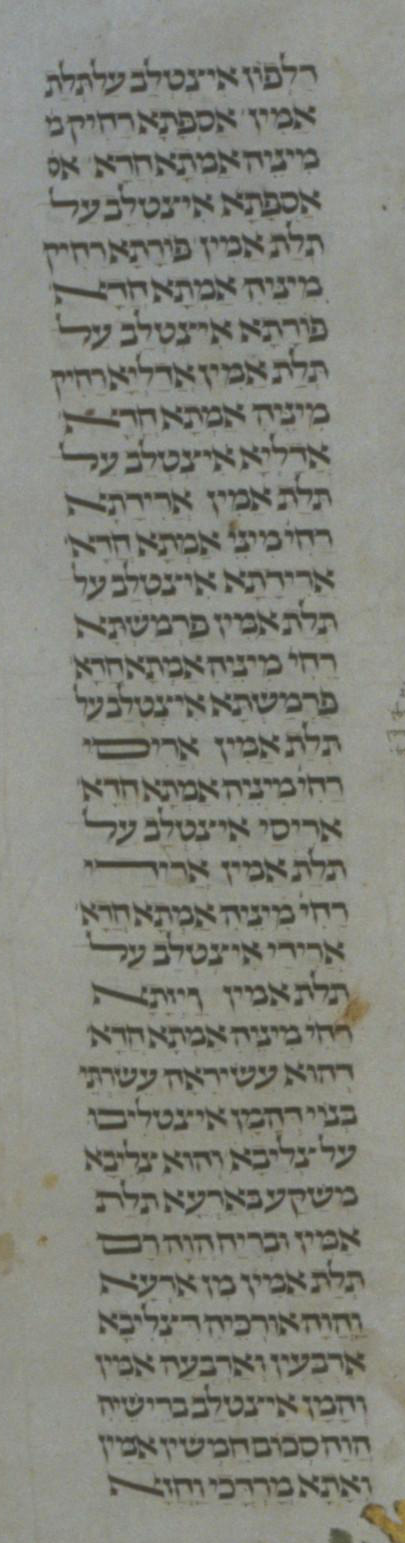 דלפון איצטליב על תלת
אמין אספתא רחיק מ
מיניה אמתא חדא אס
אספתא איצטליב על
תלת אמין פורתא רחיק
מיניה אמתא חדא
פורתא איצטליב על
תלת אמין אדליא רחיק
מיניה אמתא חדא
אדליא איצטליב על
תלת אמין ארידתא
רחי מיני אמתא חדא
ארידתא איצטליב על
תלת אמין פרמשתא
רחי מיניה אמתא חדא
פרמשתא איצטליב על
תלת אמין אריסי
רחי מיניה אמתא חדא
אריסי איצטליב על
תלת אמין ארידי
רחי מיניה אמתא חדא
ארידי איצטליב על
תלת אמין ויזתא
רחי מיניה אמתא חדא
דהוא עשיראה עשרתי
בנוי דהמן איצטליבו
על צליבא והוא צליבא
משקע בארעא תלת
אמין ובריח הוה רם
תלת אמין מן ארעא
והוה אורכיה דצליבא
ארבעין וארבעה אמין
והמן איצטלב ברישיה
הוה סכום חמשין אמין
ואתא מרדכי וחזא